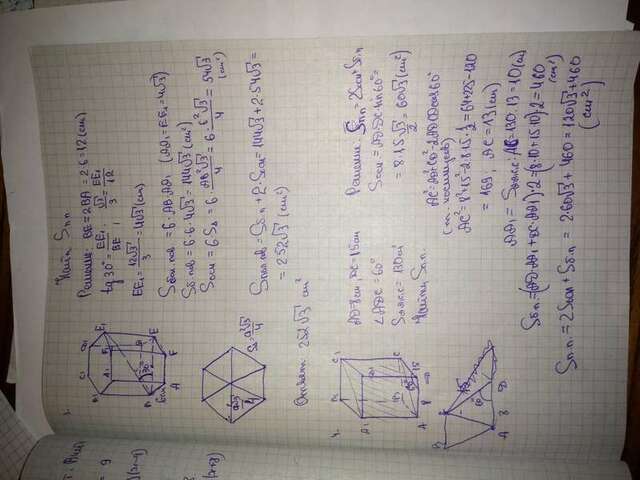 3.
Найти Sп.п.
Решение: BE = 2BA = 2·6 = 12 (см)
tg 30° = EE₁/BE ; √3/3 = EE₁/12
EE₁ = 12√3/3 = 4√3 (см)
Sбок.пов = 6·AB·AA₁ (AA₁ = EE₁ = 4√3)
Sб.пов = 6·6·4√3 = 144√3 (см²)
Sосн = 6SΔ = 6·AB²√3/4 = 6·6²√3/4 = 54√3 (см²)
SΔ = a²√3/4
Sпол.пов = Sб.п + 2·Sосн = 144√3 + 2·54√3 =
= 252√3 (см²)
Ответ: 252√3 см²
4.
AD = 8 см, DC = 15 см
∠ADC = 60°
130 см²
Найти Sп.п.
Решение: Sп.п = 2Sосн + Sб.п
Sосн = AD·DC·sin 60° =
= 8·15 √3/2 = 60√3 (см²)
AC² = AD² + CD² - 2AD·CD cos 60°
(т. косинусов)
AC² = 8² + 15² - 2·8·15·1/2 = 64 + 225 - 120
= 169, AC = 13 (см)
130 : 13 = 10 (см)
Sб.п = (AD·AA₁ + DC·AA₁)·2 = (8·10 + 15·10)·2 = 460 (см²)
Sп.п. = 2Sосн + Sб.п = 2·60√3 + 460 = 120√3 + 460 (см²)